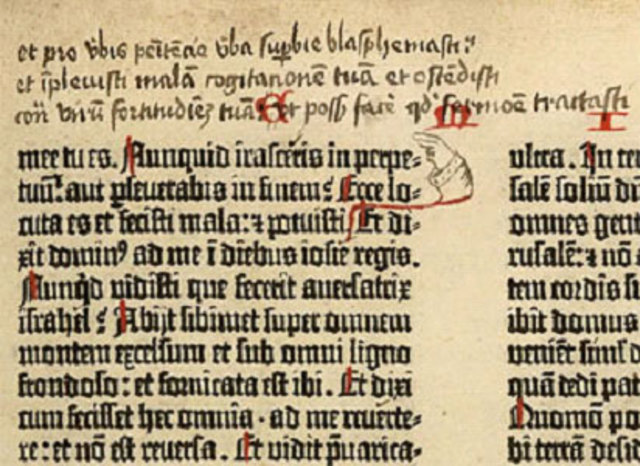 et pro v̄bis peītēcie v̄ba sup̄bie blasphemasti :
et īplevisti malā cogitationē tuā et ostēdisti
cōt̄ virū fortitudiēz tuā et poss̄ facē qd̓ sermoē tractasti
E M I
mee tu es. Nunquid irasceris in perpe=
tuū: aut ꝑseuerabis in finem? Ecce lo=
cuta es et fecisti mala: ⁊ potuisti. Et di=
xit dominꝰ ad me ī diebus iosie regis.
Nunqͥd vidisti que fecerit auersatrix
israhel? Abijt sibimet super omnem
montem excelsum et sub omni ligno
frondoso: et fornicata est ibi. Et dixi
cum fecisset hec omnia · ad me reuerte=
re: et nō est reuersa. Et vidit p̄uarica=
ultra. In te
salē soliū d
omnes gen
rusalē: ⁊ nō
tem cordis s
ibit domus
veniēt siml̓ d
quā dedi pat
Quomō po
bi terrā desid